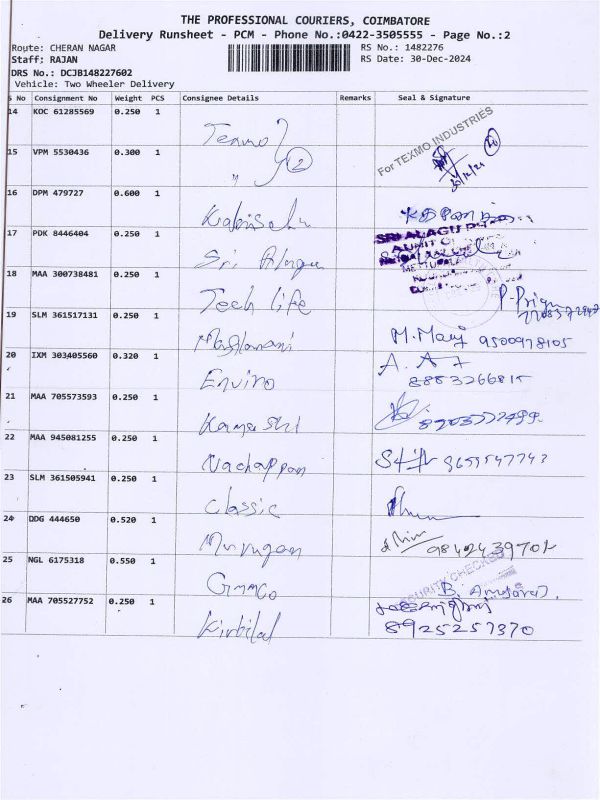 THE PROFESSIONAL COURIERS, COIMBATORE
Delivery Runsheet - PCM - Phone No.:0422-3505555 - Page No.:2
Route: CHERAN NAGAR RS No.: 1482276
Staff; RAJAN RS Date: 30-Dec-2024
DRS No.: DCJB148227602
Vehicle: Two Wheeler Delivery
S No Consignment No Weight PCS Consignee Details Remarks Seal & Signature
14 KOC 61285569 0.250 1 Texmo
For TEXMO INDUSTRIES
15 VPM 5530436 0.300 1 " 2
30/12/24
16 DPM 479727 0.600 1
17 PDK 8446404 0.250 1 Sri Alagu
SRI ALAGU
A UNIT OF
18 MAA 300738481 0.250 1 Tech life
P. Priya
19 SLM 361517131 0.250 1
M. Marj 9500978105
20 IXM 303405560 0.320 1 Enviro
21 MAA 705573593 0.250 1
22 MAA 945081255 0.250 1 Nachappan
23 SLM 361505941 0.250 1 Classic
24 DDG 444650 0.520 1 Murugan
25 NGL 6175318 0.550 1
SECURITY CHECKED
26 MAA 705527752 0.250 1
8925257370